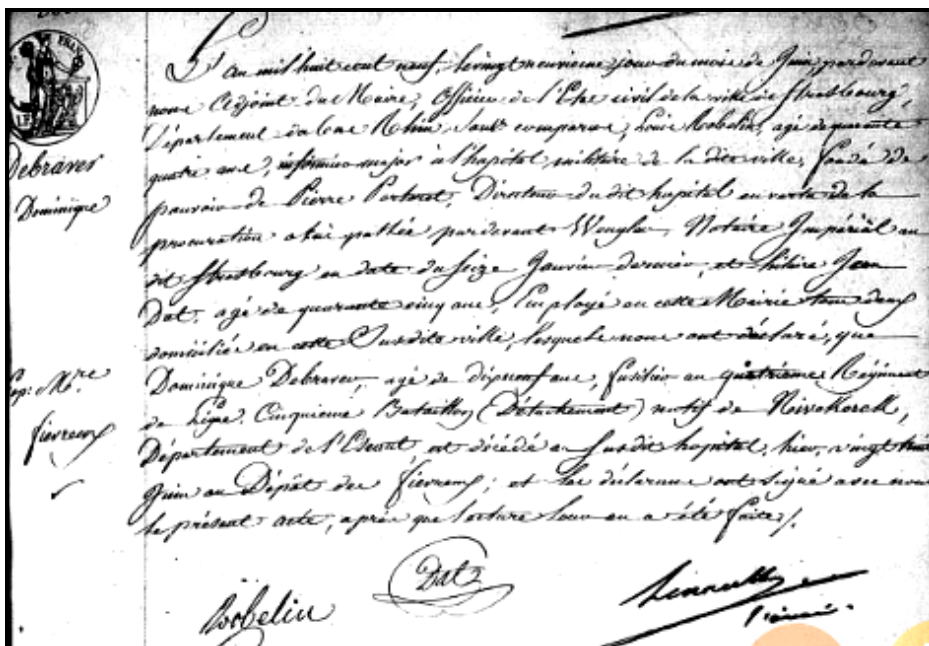 Debraver
Dominique
hôp: M.re
fievreux
L'an mil huit cent neuf, le vingt neuvieme jour du mois de Juin, pardevant
nous adjoint du Maire, Officier de l'Etat civil de la ville de Strasbourg,
Département du bas Rhin, sont comparus, Louis Robelin, agé de quarante
quatre ans, infirmier major à l'hopital militaire de la dite ville, fondé de
pouvoir de Pierre Directeur du dit hopital en vertu de la
procuration a lui passée pardevant Notaire Impérial au
dit Strasbourg en date du seize Janvier dernier, et hilaire Jean
Dat, agé de quarante cinq ans, Employé en cette Mairie tous deux
domiciliés en cette Susdite ville, lesquels nous ont déclaré, que
Dominique Debraver, agé de dixneuf ans, fusilier au quatrième Régiment
de Ligne, Cinquieme Bataillon (Détachement) natif de
Département de l'Escaut, est décédé au Susdit hopital, hier, vingt huit
Juin au Dépôt des fievreux; et les déclarans ont signé avec nous
le présent acte, après que lecture leur en a été faite./.
Robelin
Dat